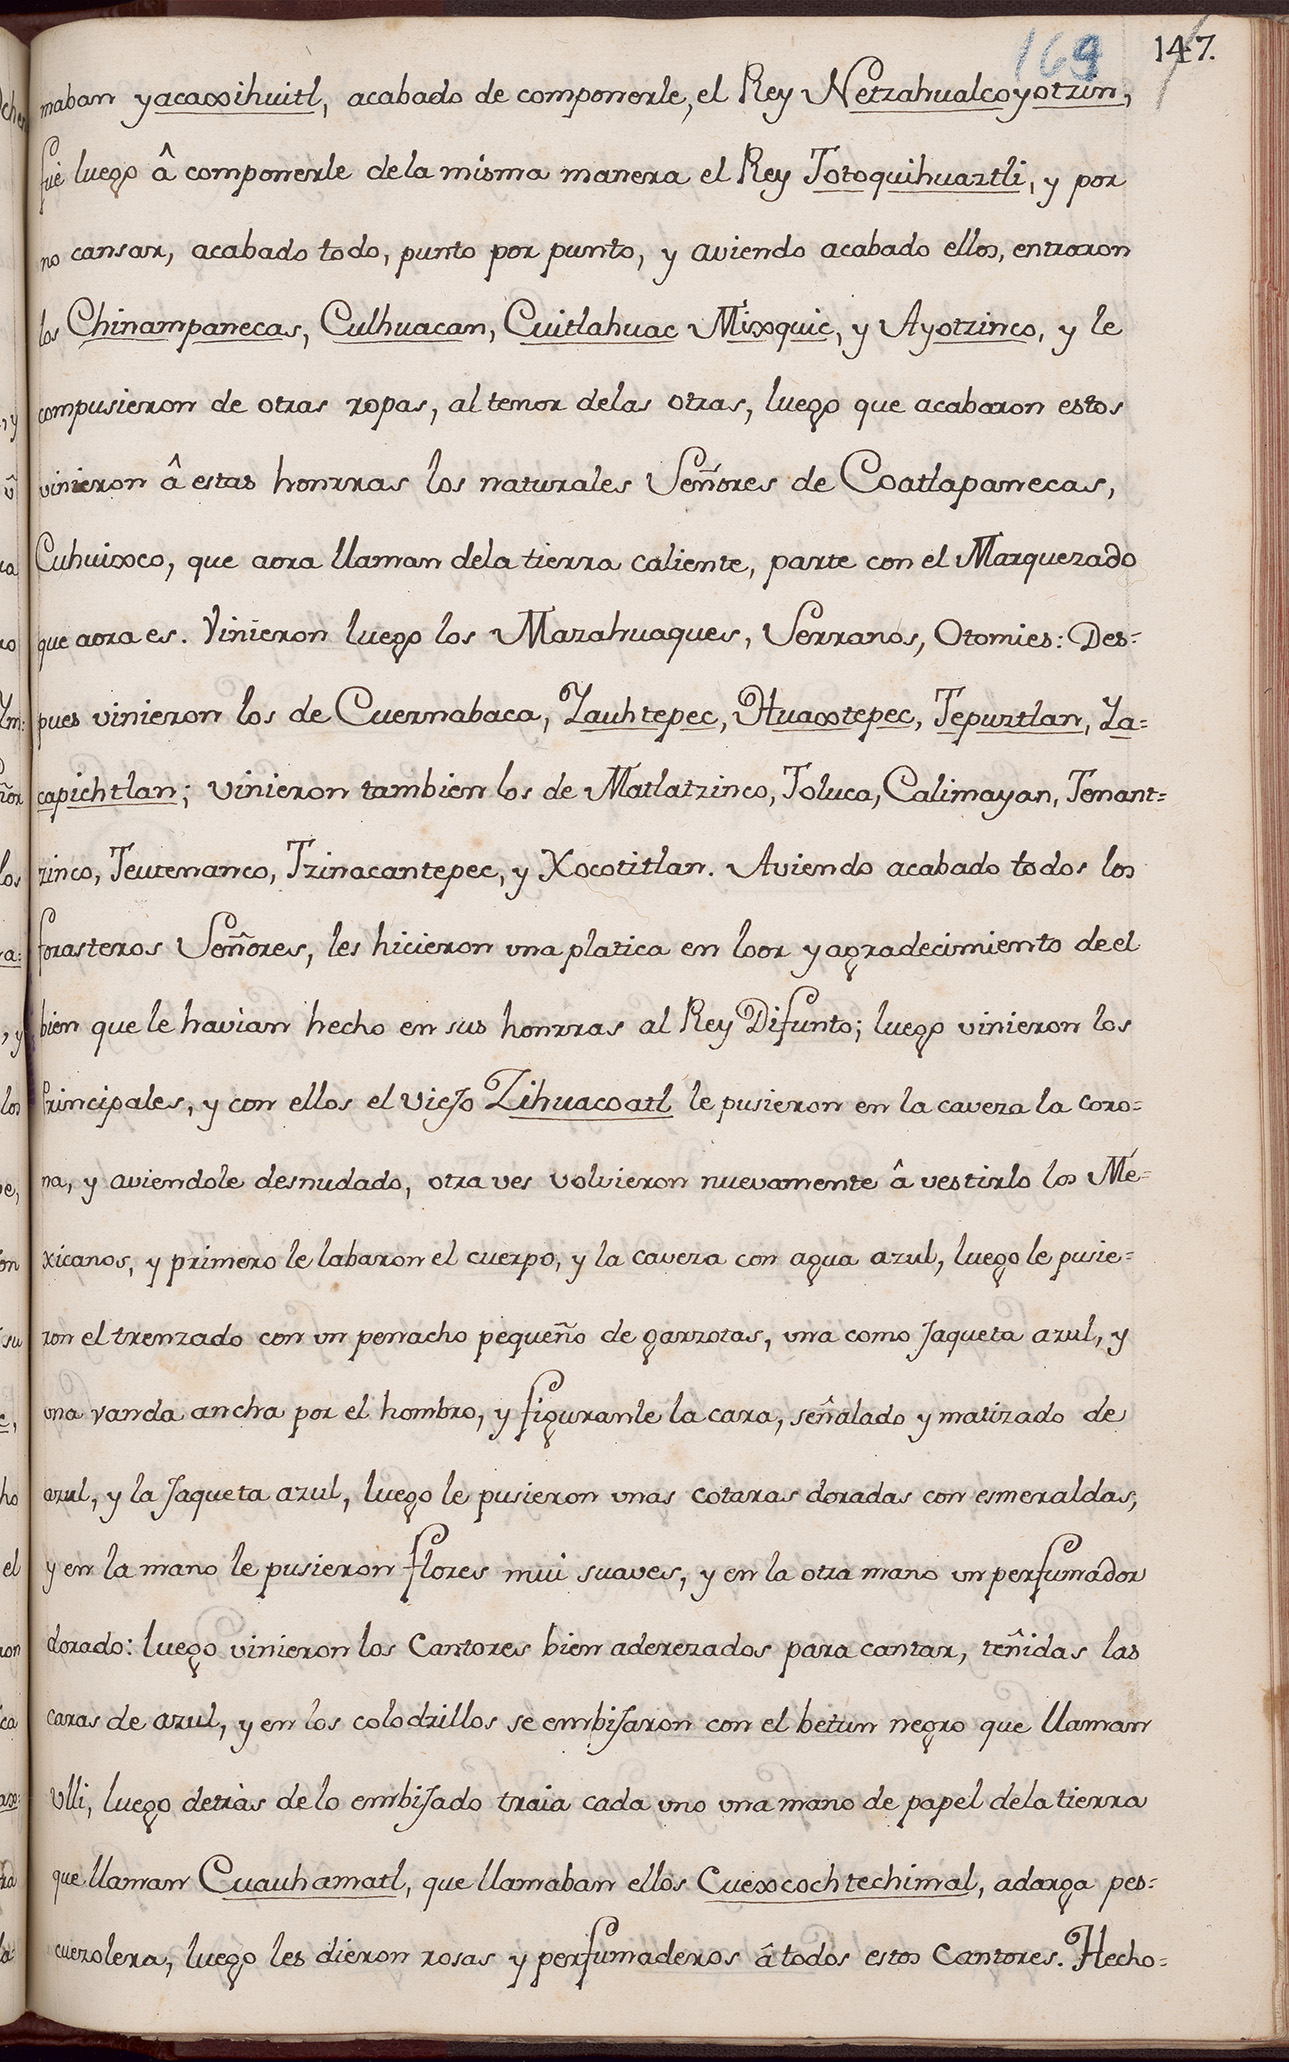 169 147.
maban yacaxihuitl, acabado de componerle, el Rey Netzahualcoyotzin,
fuè luego â componerle dela misma manera el Rey Totoquihuaztli, y por
no cansar, acabado todo, punto por punto, y aviendo acabado ellos, entraron
los Chinampanecas, Culhuacan, Cuitlahuac Mixquic, y Ayotzinco, y le
compusieron de otras ropas, al tenor delas otras, luego que acabaron estos
vinieron â estas honrras los naturales Señores de Coatlapanecas,
Cuhuixco, que aora llaman dela tierra caliente, parte con el Marquezado
que aora es. Vinieron luego los Mazahuaques, Serranos, Otomies: Des=
pues vinieron los de Cuernabaca, Yauhtepec, Huaxtepec, Tepuztlan, Ya=
capichtlan; vinieron tambien los de Matlatzinco, Toluca, Calimayan, Tenant=
zinco, Teutenanco, Tzinacantepec, y Xocotitlan. Aviendo acabado todos los
forasteros Señores, les hicieron una platica en loor y agradecimiento de el
bien que le havian hecho en sus honrras al Rey Difunto; luego vinieron los
Principales, y con ellos el viejo Zihuacoatl le pusieron en la caveza la coro=
na, y aviendole desnudado, otra ves volvieron nuevamente â vestirlo los Me=
xicanos, y primero le labaron el cuerpo, y la caveza con agua azul, luego le pusie=
ron el trenzado con un penacho pequeño de garzotas, una como Jaqueta azul, y
una vanda ancha por el hombro, y figuranle la cara, señalado y matizado de
azul, y la Jaqueta azul, luego le pusieron unas cotaras doradas con esmeraldas,
y en la mano le pusieron flores mui suaves, y en la otra mano un perfumador
dorado: luego vinieron los Cantores bien aderezados para cantar, teñidas las
caras de azul, y en los colodrillos se embijaron con el betun negro que llaman
Ulli, luego detràs de lo embijado traia cada uno una mano de papel dela tierra
que llaman Cuauhamatl, que llamaban ellos Cuexcochtechimal, adarga pes=
cuezolera, luego les dieron rosas y perfumaderos â todos estos Cantores. Hecho=